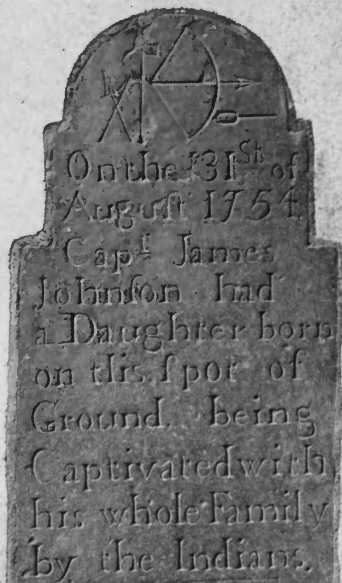 On the 31St of
Auguſt 1754
Capt James
Johnſon had
a Daughter born
on this ſpot of
Ground, being
Captivated with
his whole Family
by the Indians.